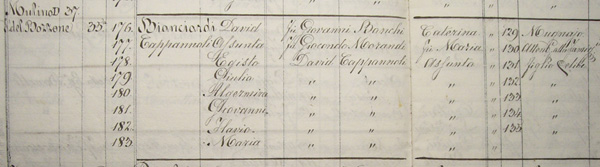 Mulino D. 37.
del Bozzone 35. 176. Bianciardi David fu Giovanni Bianchi Caterina „ 129 Mugnajo
177. Cappannoli Assunta fu Giocondo Morandi fu Maria „ 130 Attend.
178. Egisto David Cappannoli Assunta „ 131 figlio Celibe
179 Giulia „ „ „ 132 „
180 „ „ „ 133 „
181. Giovanni „ „ „ 134 „
182. Flavio „ „ „ 135 „
183 Maria „ „ „ „